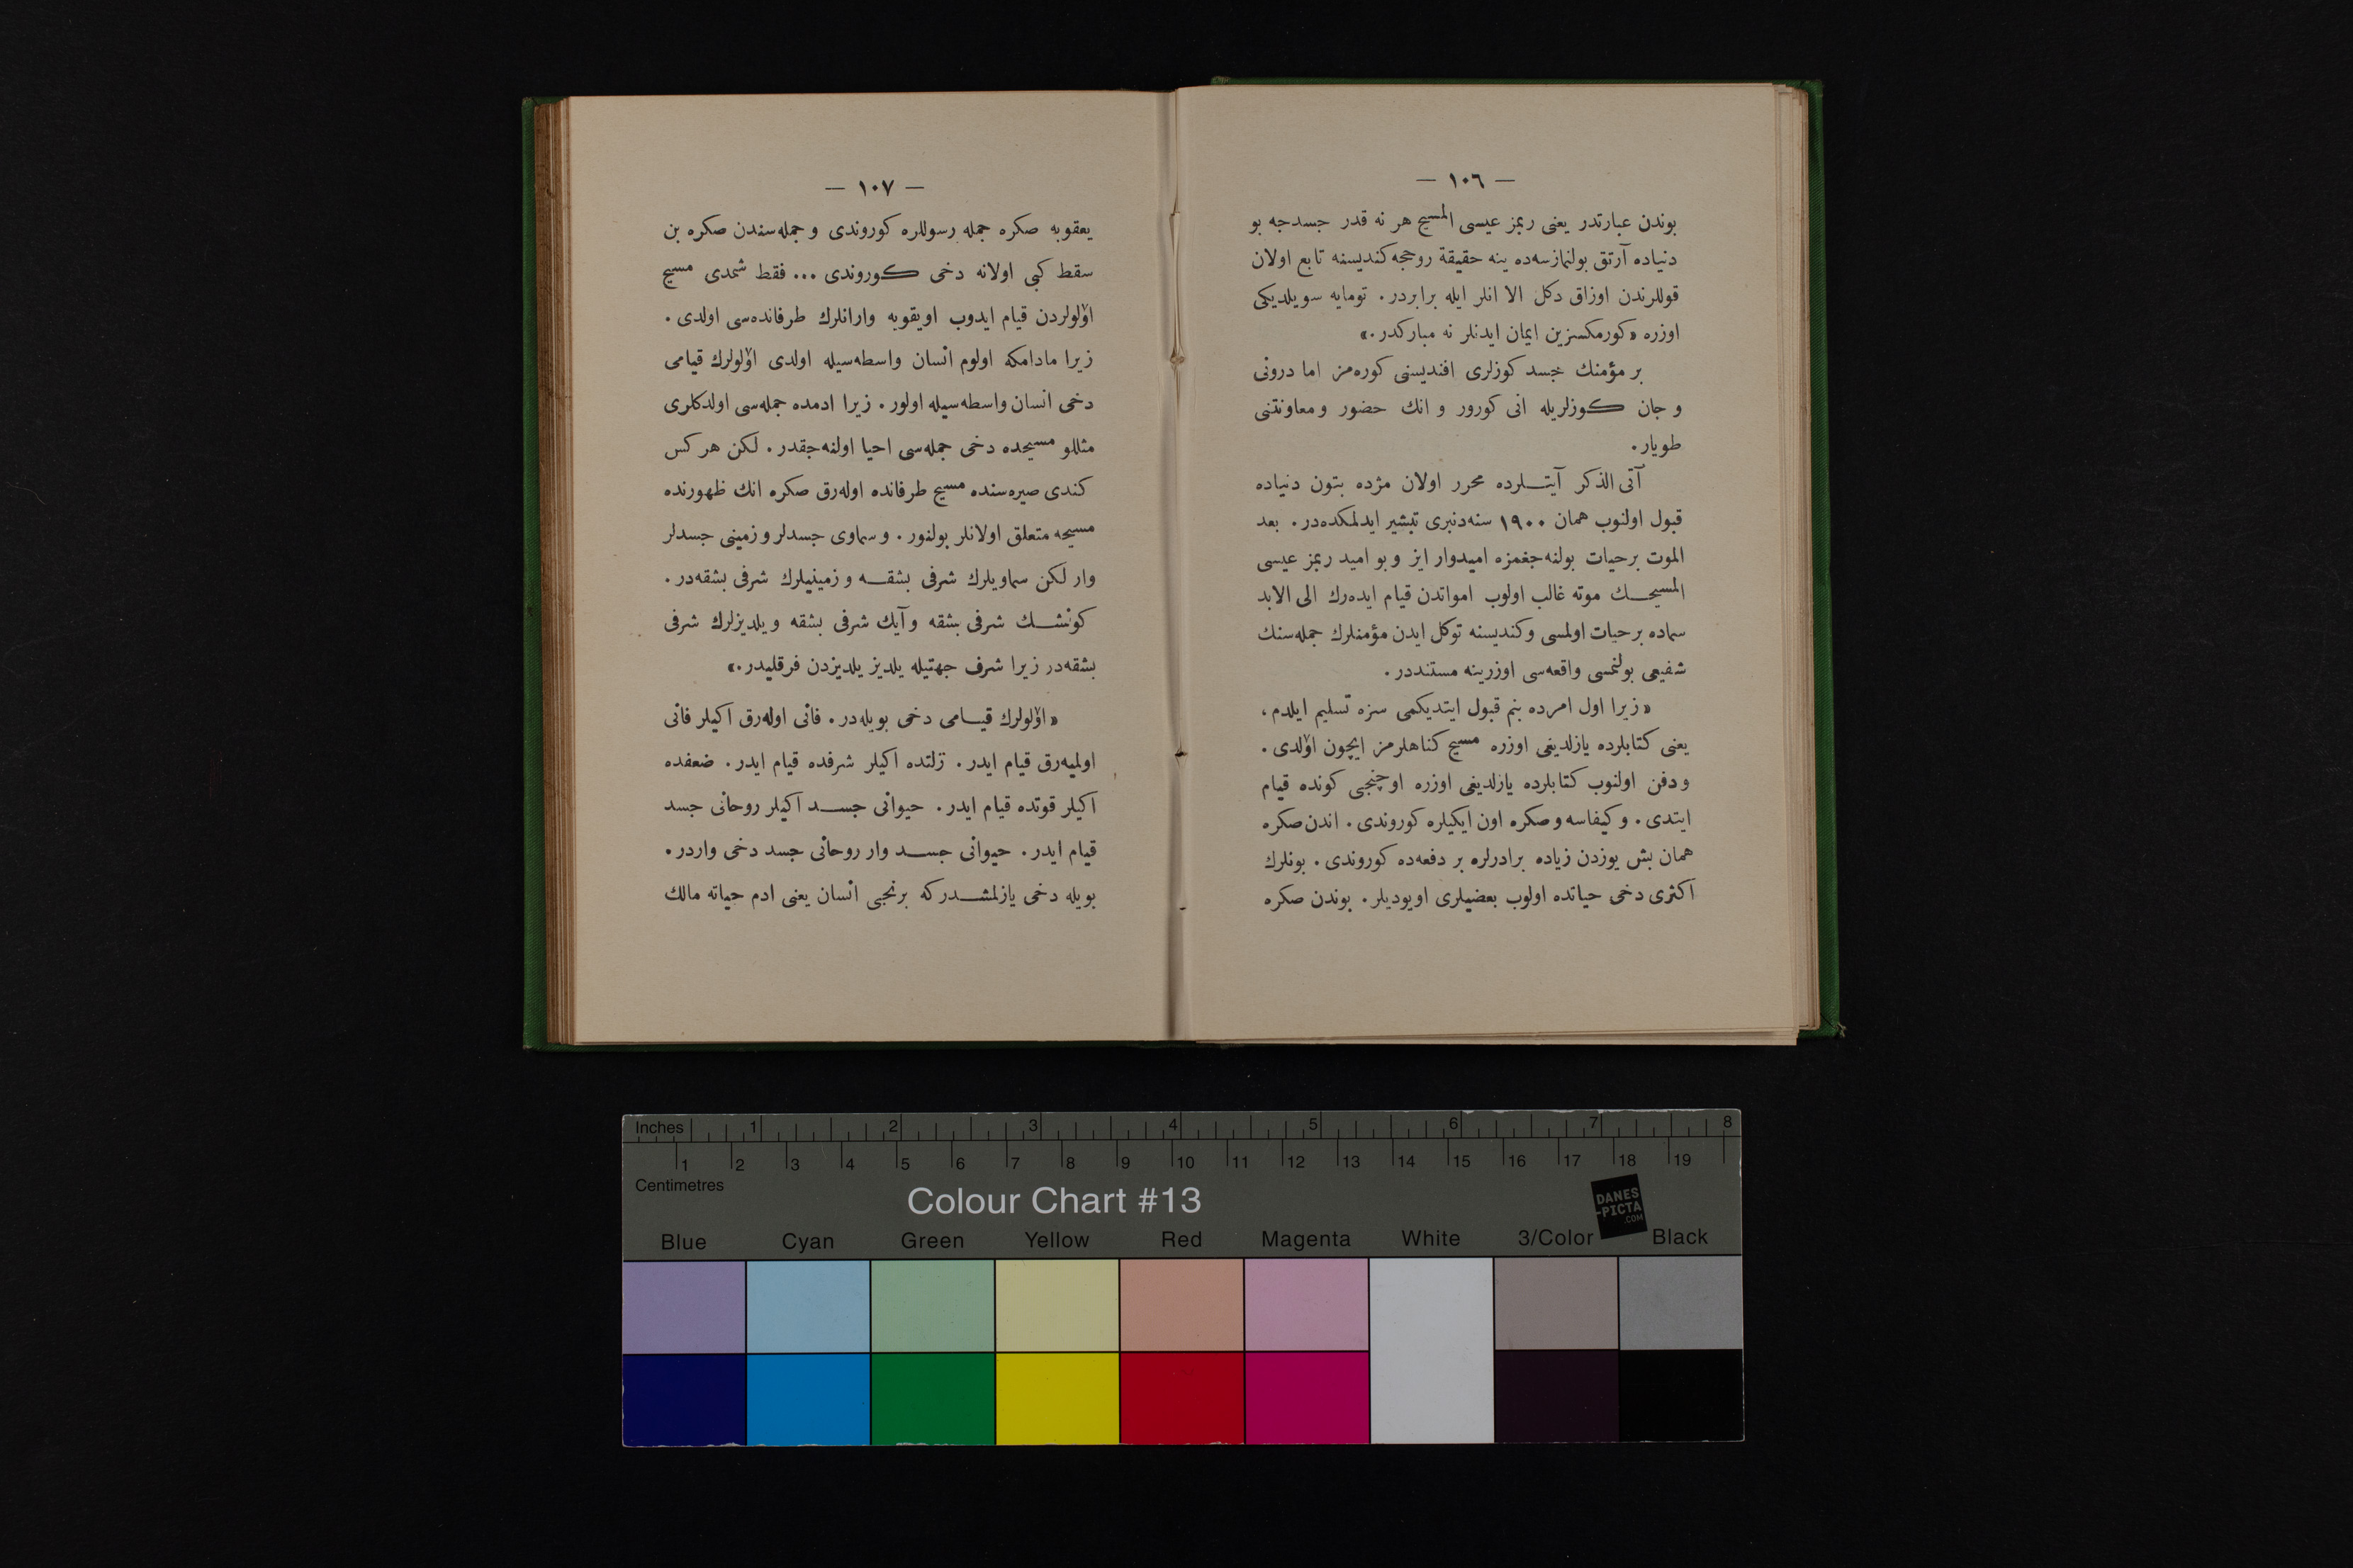 — ١٠٦ —
بوندن عبارتدر يعنى ربمز عيسى المسيح هر نه قدر جسدجه بو
دنياده آرتق بولنمازسه‌ده ينه حقيقة روحجه كنديسنه تابع اولان
قوللرندن اوزاق دكل الا انلر ايله برابردر. تومايه سويلديكى
اوزره «كورمكسزين ايمان ايدنلر نه مباركدر.»
بر مؤمنك جسد كوزلرى افنديسنى كوره‌مز اما درونى
و جان كوزلريله انى كورور و انك حضور و معاونتنى
طويار.
آتى الذكر آيتلرده محرر اولان مژده بتون دنياده
قبول اولنوب همان ١٩٠٠ سنه‌دنبرى تبشير ايدلمكده‌در. بعد
الموت برحيات بولنه‌جغمزه اميدوار ايز و بو اميد ربمز عيسى
المسيحك موته غالب اولوب امواتدن قيام ايده‌رك الى الابد
سماده برحيات اولمسى و كنديسنه توكل ايدن مؤمنلرك جمله‌سنك
شفيعى بولنمسى واقعه‌سى اوزرينه مستنددر.
«زيرا اول امرده بنم قبول ايتديكمى سزه تسليم ايلدم،
يعنى كتابلرده يازلديغى اوزره مسيح كناهلرمز ايچون اوٓلدى.
و دفن اولنوب كتابلرده يازلديغى اوزره اوچنجى كونده قيام
ايتدى. و كيفاسه و صكره اون ايكيلره كوروندى. اندن صكره
همان بش يوزدن زياده برادرلره بر دفعه‌ده كوروندى. بونلرك
اكثرى دخى حياتده اولوب بعضيلرى اويوديلر. بوندن صكره
— ١٠٧ —
يعقوبه صكره جمله رسوللره كوروندى و جمله‌سندن صكره بن
سقط كبى اولانه دخى كوروندى ... فقط شمدى مسيح
اوٓلولردن قيام ايدوب اويقويه وارانلرك طرفانده‌سى اولدى.
زيرا مادامكه اولوم انسان واسطه‌سيله اولدى اوٓلولرك قيامى
دخى انسان واسطه‌سيله اولور. زيرا ادمده جمله‌سى اولدكلرى
مثللو مسيحده دخى جمله‌سى احيا اولنه‌جقدر. لكن هر كس
كندى صيره‌سنده مسيح طرفانده اوله‌رق صكره انك ظهورنده
مسيحه متعلق اولانلر بولنور. و سماوى جسدلر و زمينى جسدلر
وار لكن سماويلرك شرفى بشقه و زمينيلرك شرفى بشقه‌در.
كونشك شرفى بشقه و آيك شرفى بشقه و يلديزلرك شرفى
بشقه‌در زيرا شرف جهتيله يلديز يلديزدن فرقليدر.»
«اوٓلولرك قيامى دخى بويله‌در. فانى اوله‌رق اكيلر فانى
اولميه‌رق قيام ايدر. زلتده اكيلر شرفده قيام ايدر. ضعفده
اكيلر قوتده قيام ايدر. حيوانى جسد اكيلر روحانى جسد
قيام ايدر. حيوانى جسد وار روحانى جسد دخى واردر.
بويله دخى يازلمشدركه برنجى انسان يعنى ادم حياته مالك
Inches 1 2 3 4 5 6 7 8
1 2 3 4 5 6 7 8 9 10 11 12 13 14 15 16 17 18 19
Centimetres
Colour Chart #13
DANES
-PICTA
.COM
Blue Cyan Green Yellow Red Magenta White 3/Color Black